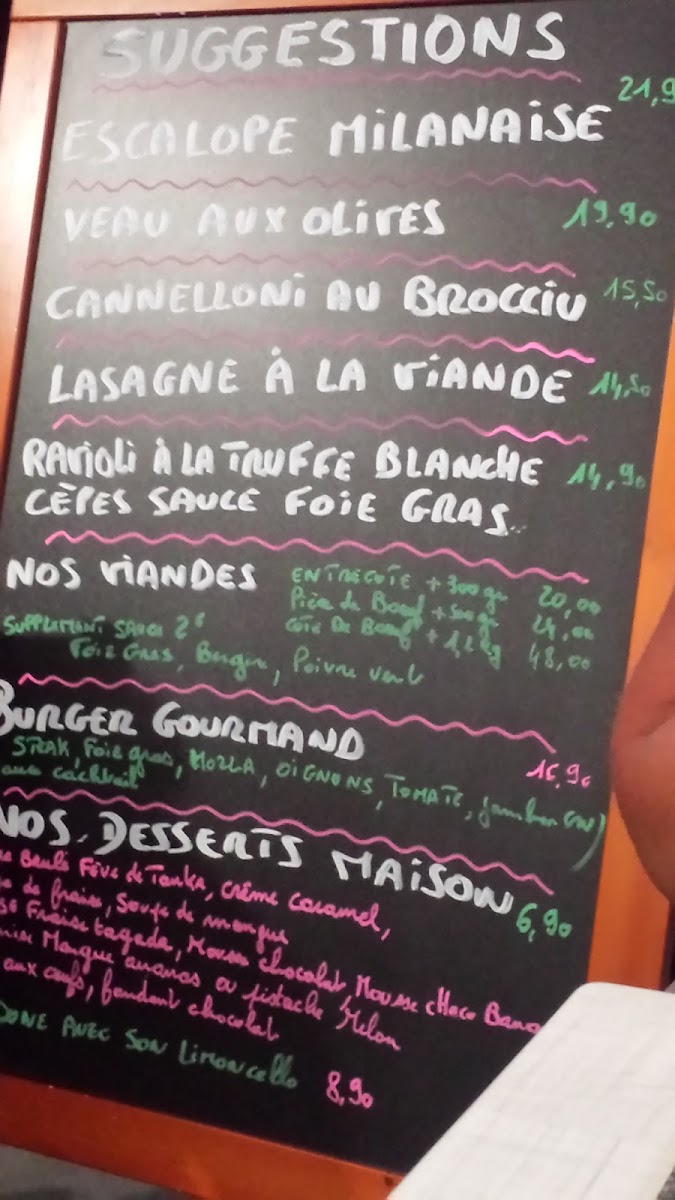 SUGGESTIONS
21,9
ESCALOPE MILANAISE
VEAU AUX OLIVES 19,90
CANNELLONI AU BROCCIU 15,50
LASAGNE À LA VIANDE 14,50
RAVIOLI À LA TRUFFE BLANCHE 14,90
CÈPES SAUCE FOIE GRAS..
NOS VIANDES
ENTRECOTE +300gr 20,00
Pièce de Boeuf +500gr 24,00
Côte De Boeuf +1,2kg 48,00
SUPPLEMENT SAUCE 2€
Foie GRAS, Poivre vert
BURGER GOURMAND 16,90
STEAK, Foie gras, MOZZA, OIGNONS, TOMATE, jambon
cocktail
NOS DESSERTS MAISON 6,90
Brulé Fève de Tonka, crème caramel,
de fraise, Soupe de mangue
Fraise tagada, Mousse chocolat, Mousse choco Bana
Mangue ananas ou pistache Melon
aux oeufs, fondant chocolat
DONE AVEC SON LIMONCELLO 8,90